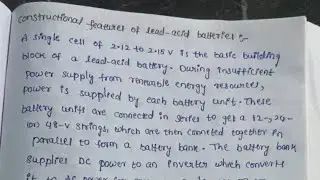 Constructional features of lead-acid batteries :-
A single cell of 2.12 to 2.15 V is the basic building
block of a lead-acid battery. During insufficient
power supply from renewable energy resources,
power is supplied by each battery unit. These
battery units are connected in series to get a 12-, 24-
(or) 48-V strings, which are then connected together in
parallel to form a battery bank. The battery bank
supplies DC power to an inverter which converts
it to